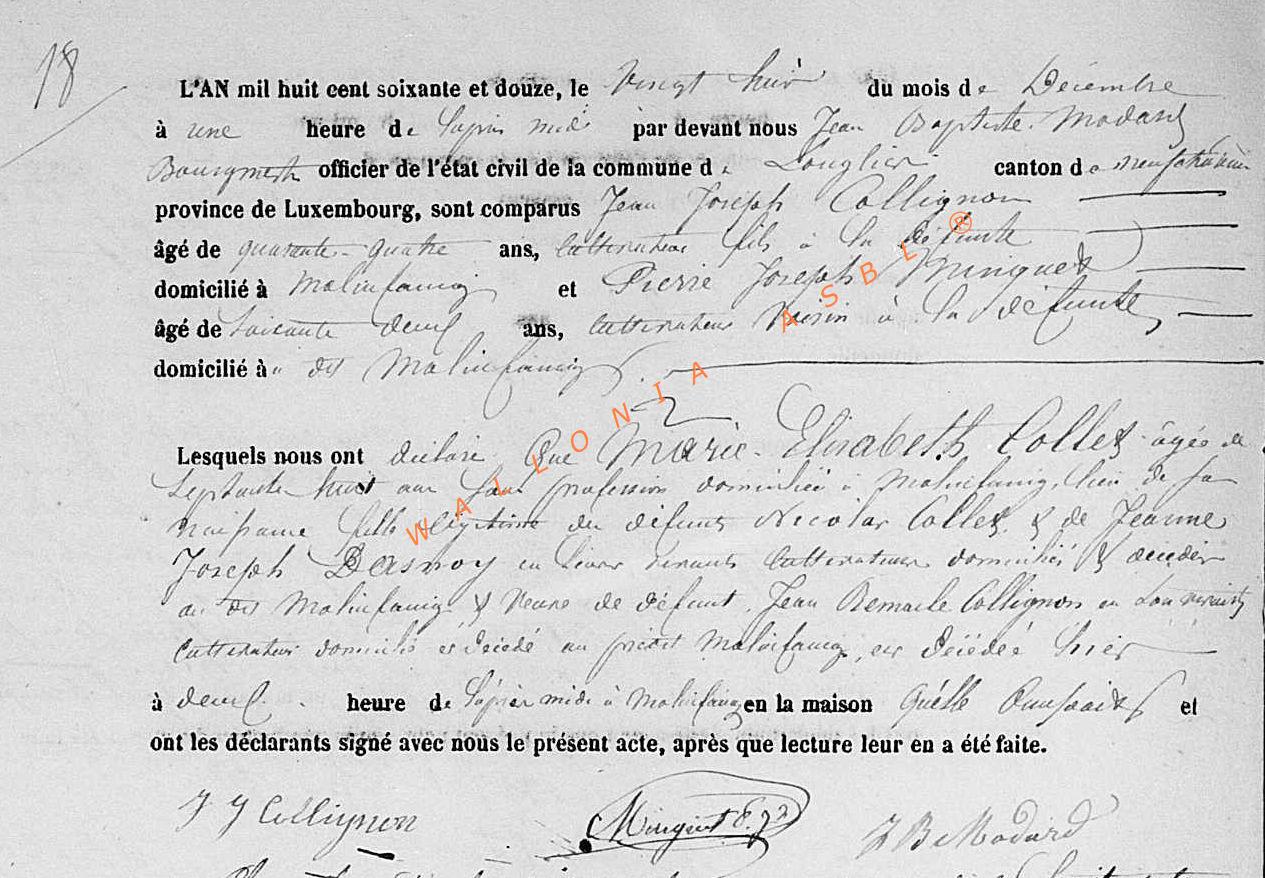 18
L'AN mil huit cent soixante et douze, le Vingt huit du mois de Décembre
à une heure de l'après midi par devant nous Jean Baptiste Modard
Bourgmestre officier de l'état civil de la commune de Longlier canton de neufchateau
province de Luxembourg, sont comparus Jean Joseph Collignon
âgé de quarante-quatre ans, cultivateur fils à la défunte
domicilié à Molinfaing et Pierre Joseph Minguet
âgé de soixante deux ans, cultivateur voisin à la défunte
domicilié à dit Molinfaing
Lesquels nous ont déclaré Que Marie-Elisabeth Collet âgée de
septante huit ans sans profession domiciliée à Molinfaing, lieu de sa
naissance fille légitime du défunt Nicolas Collet & de Jeanne
Joseph Dasnoy en leurs vivants cultivateurs domiciliés & décédés
au dit Molinfaing & Veuve de défunt Jean Remacle Collignon en son vivant
cultivateur domicilié et décédé au prédit Molinfaing, est décédée hier
à deux heure de l'après midi à Molinfaing en la maison Qu'elle et
ont les déclarants signé avec nous le présent acte, après que lecture leur en a été faite.
J J Collignon Minguet J B Modard
WALLONIA ASBL ®